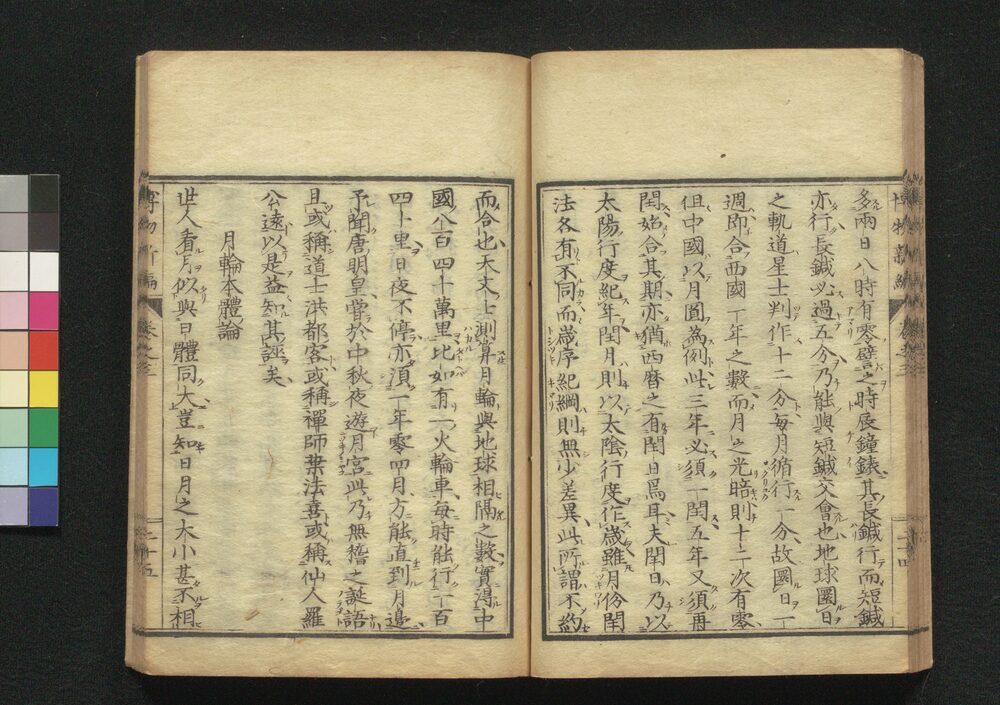 多兩日八時有零譬之時辰鐘錶其長鍼行而短鍼
亦行長鍼必過五分乃能與短鍼交會也地球圜日
之軌道星士判作十二分每月循行一分故圜日一
週即合西國一年之數而月之光暗則十二次有零
但中國以月圓為例此三年必須一閏五年又須再
閏始合其期亦猶西曆之有閏日焉耳夫閏日乃以
太陽行度紀年閏月則以太陰行度作歲雖月份閏
法各有不同而歲序紀綱則無少差異此所謂不約
而合也天文士測算月輪與地球相隔之數實得中
國八百四十萬里比如有一火輪車每時能行一百
四十里日夜不停亦須一年零四月方能直到月邊
予聞唐明皇嘗於中秋夜遊月宮此乃無稽之誕語
且或稱道士洪都客或稱禪師葉法喜或稱仙人羅
公遠以是益知其誣矣
月輪本體論
世人看月似與日體同大豈知日月之大小甚不相